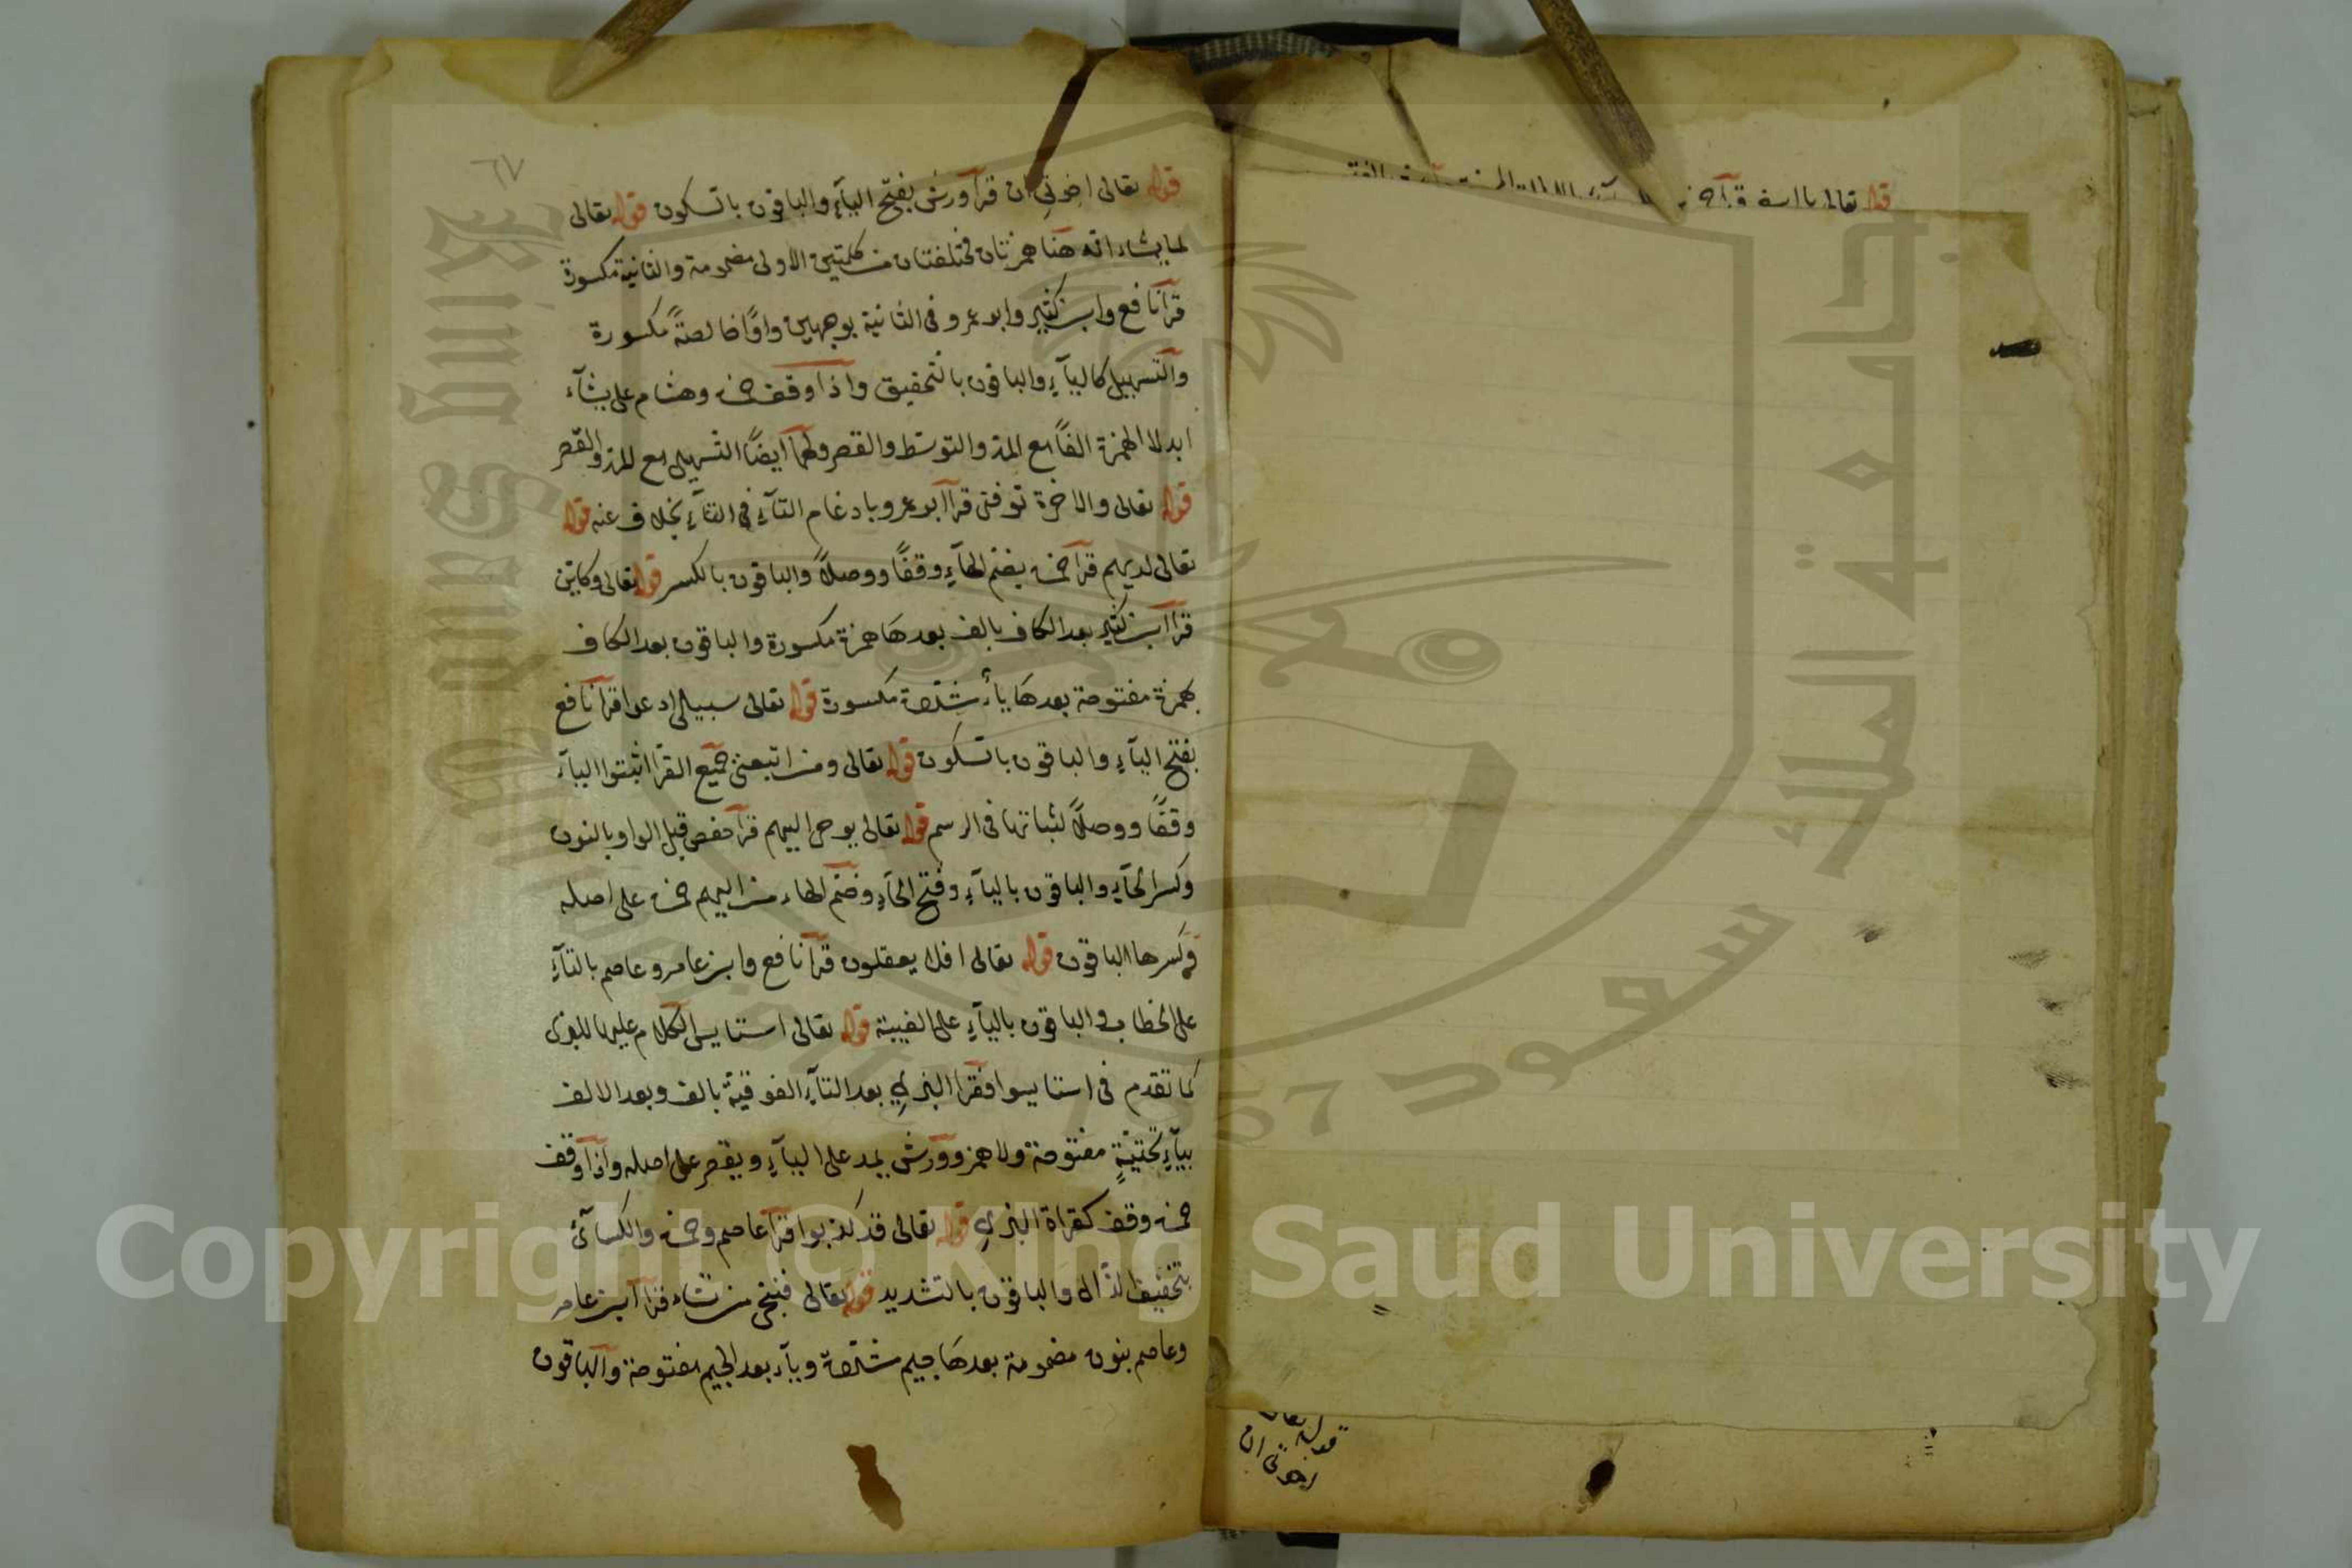 قوله تعالى يا اسفى قرأ
٦٧
قوله تعالى اخوتي ان قرأ ورش بفتح الياء والباقون بالسكون قوله تعالى
لما يشاء انه هنا همزتان مختلفتان من كلمتين الاولى مضمومة والثانية مكسورة
قرأ نافع وابن كثير وابو عمرو في الثانية بوجهين واوًا خالصةً مكسورة
والتسهيل كالياء والباقون بالتحقيق واذا وقف حمزة وهشام على يشآء
ابدلا الهمزة الفًا مع المد والتوسط والقصر ولهما ايضًا التسهيل مع المد والقصر
قوله تعالى والاخرة توفني قرأ ابو عمرو بادغام التآء في التآء بخلاف عنه قوله
تعالى لديهم قرأ حمزة بضم الهآء وقفًا ووصلًا والباقون بالكسر قوله تعالى وكاين
قرأ ابن كثير بعد الكاف بالف بعدها همزة مكسورة والباقون بعد الكاف
بهمزة مفتوحة بعدها ياء مشددة مكسورة قوله تعالى سبيلى ادعوا قرأ نافع
بفتح اليآء والباقون بالسكون قوله تعالى ومن اتبعنى جميع القرا اثبتوا اليآء
وقفًا ووصلًا لثباتها فى الرسم قوله تعالى يوحى اليهم قرأ حفص قبل الواو بالنون
وكسر الحآء والباقون باليآء وفتح الحآء وضم الهاء من اليهم حمزة على اصله
وكسرها الباقون قوله تعالى افلا يعقلون قرأ نافع وابن عامر وعاصم بالتآء
على الخطاب والباقون باليآء على الغيبة قوله تعالى استايس الكلام عليها للبزى
كما تقدم فى استايسوا فقرا البزي بعد التآء الفوقية بالف وبعد الالف
بيآء تحتيةٍ مفتوحة ولا همز وورش يمد على اليآء ويقصر على اصله واذا وقف
حمزة وقف كقراة البزي قوله تعالى قد كذبوا قرأ عاصم وحمزة والكسآئى
بتخفيف الذال والباقون بالتشديد قوله تعالى فنجى من نشاء قرأ ابن عامر
وعاصم بنون مضمومة بعدها جيم مشددة ويآء بعد الجيم مفتوحة والباقون
قوله تعالى
اخوتى ان
جامعة الملك سعود
King Saud University
1957
Copyright © King Saud University